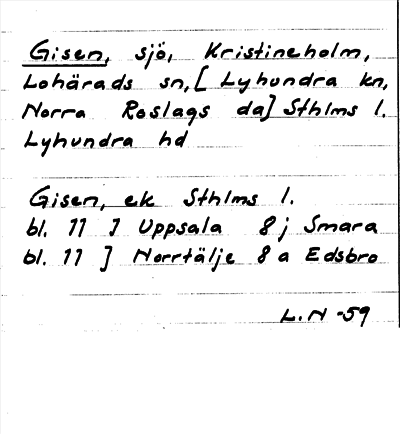 Gisen, sjö, Kristineholm,
Lohärads sn, [Lyhundra kn,
Norra Roslags da] Sthlms l.
Lyhundra hd
Gisen, ek Sthlms l.
bl. 11 ] Uppsala 8 j Smara
bl. 11 ] Norrtälje 8 a Edsbro
L.N -59